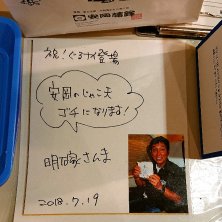 安岡蒲鉾
祝！ぐるナイ登場
安岡のじゃこ天
ゴチになります！
明石家さんま
2018.7.19